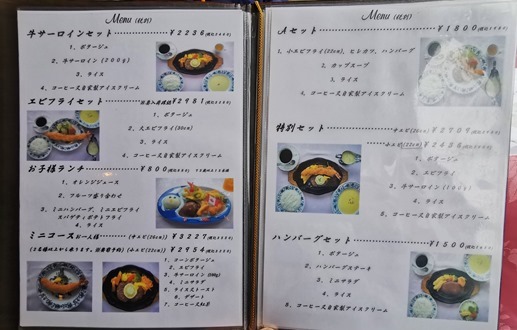 Menu (税別)
牛サーロインセット ￥2236
1、ポタージュ
2、牛サーロイン (200g)
3、ライス
4、コーヒー又自家製アイスクリーム
エビフライセット ￥2981
1、ポタージュ
2、大エビフライ(30cm)
3、ライス
4、コーヒー又自家製アイスクリーム
お子様ランチ ￥800
1、オレンジジュース
2、フルーツ盛り合わせ
3、ミニハンバーグ、ミニエビフライ
スパゲティポテトフライ
4、ライス
ミニコースお一人様 ￥3227
￥2954
1、コーンポタージュ
2、エビフライ
3、牛サーロイン
4、ミニサラダ
5、ライス又トースト
6、デザート
7、コーヒー又紅茶
Menu (税別)
Aセット ￥1800
1、小エビフライ(22cm)、ヒレカツ、ハンバーグ
2、カップスープ
3、ライス
4、コーヒー又自家製アイスクリーム
特別セット ￥2709
￥2436
1、ポタージュ
2、エビフライ
3、牛サーロイン (100g)
4、ライス
5、コーヒー又自家製アイスクリーム
ハンバーグセット ￥1500
1、ポタージュ
2、ハンバーグステーキ
3、ミニサラダ
4、ライス
5、コーヒー又自家製アイスクリーム